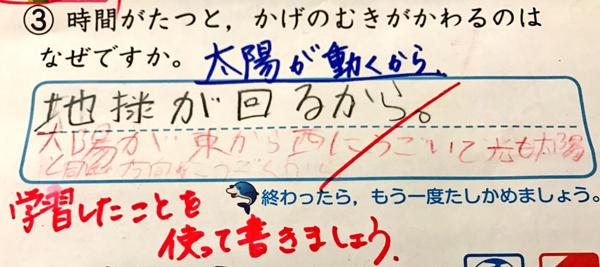 ③ 時間がたつと，かげのむきがかわるのは
なぜですか。
太陽が動くから。
地球が回るから。
太陽が東から西にうごいて光も太陽
と同じ方向に
終わったら，もう一度たしかめましょう。
学習したことを
使って書きましょう。